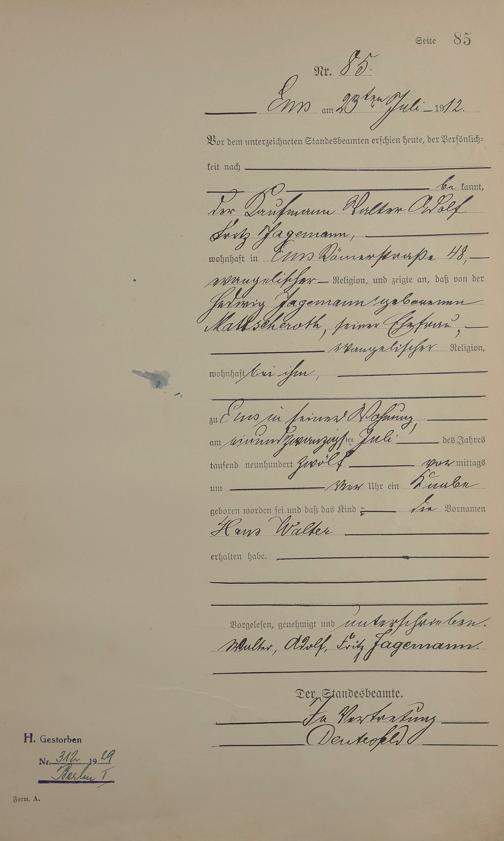 Seite 85
Nr. 85.
Ems am 23ten Juli 1912.
Vor dem unterzeichneten Standesbeamten erschien heute, der Persönlich-
keit nach
be kannt,
der Kaufmann Walter Adolf
Fritz Jagemann,
wohnhaft in Ems Römerstraße 48,
evangelischer Religion, und zeigte an, daß von der
Hedwig Jagemann geborenen
seiner Ehefrau,
evangelischer Religion,
wohnhaft bei ihm,
zu Ems in seiner Wohnung,
am einundzwanzigsten Juli des Jahres
tausend neunhundert zwölf vor mittags
um vier Uhr ein Knabe
geboren worden sei und daß das Kind die Vornamen
Hans Walter
erhalten habe.
Vorgelesen, genehmigt und unterschrieben.
Walter, Adolf, Fritz Jagemann.
Der Standesbeamte.
In Vertretung
H. Gestorben
Nr. 312 1929
Berlin I
Form. A.